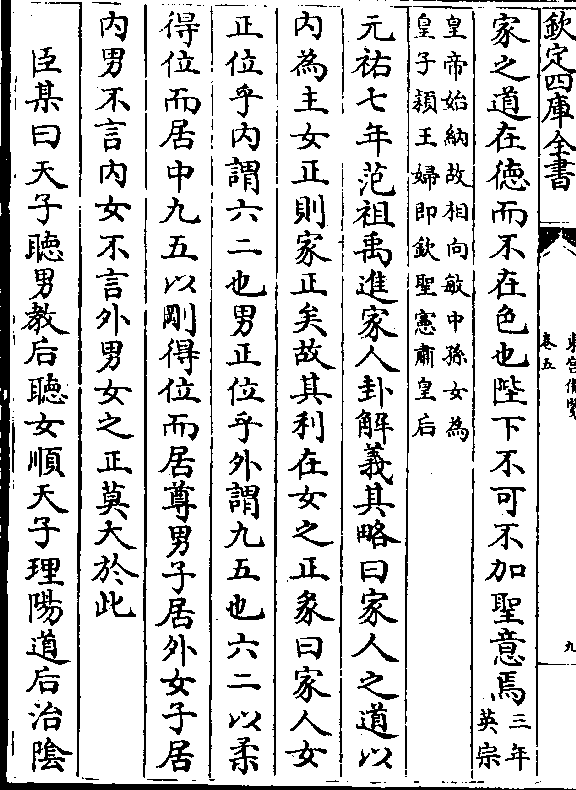 欽定四庫全書
東宮備覽
卷五
九
家之道在德而不在色也陛下不可不加聖意焉
三年
英宗
皇帝始納故相向敏中孫女為
皇子頴王婦即欽聖憲肅皇后
元祐七年范祖禹進家人卦解義其略曰家人之道以
內為主女正則家正矣故其利在女之正彖曰家人女
正位乎內謂六二也男正位乎外謂九五也六二以柔
得位而居中九五以剛得位而居尊男子居外女子居
內男不言內女不言外男女之正莫大於此
臣某曰天子聽男教后聽女順天子理陽道后治陰